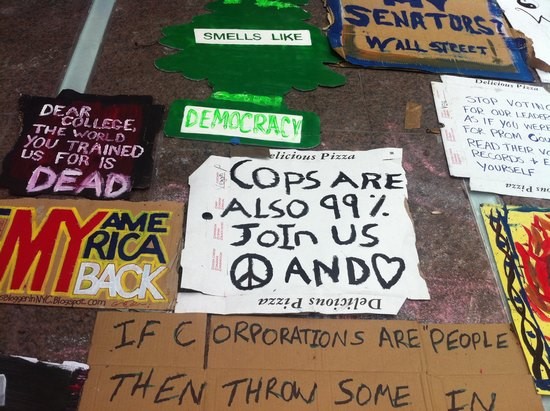 MY
SENATORS?
WALL STREET!
SMELLS LIKE
DEMOCRACY
DEAR
COLLEGE,
THE WORLD
YOU TRAINED
US FOR IS
DEAD
Delicious Pizza
STOP VOTING
FOR OUR LEADE
AS IF YOU WERE
FOR PROM
READ THEIR VO
RECORDS + E
YOURSELF
Delicious Pizza
elicious Pizza
COPS ARE
ALSO 99%
JOIN US
☮ AND ♡
Delicious Pizza
MY AME
RICA
BACK
InNYC.Blogspot.com
IF CORPORATIONS ARE "PEOPLE
THEN THROW SOME IN